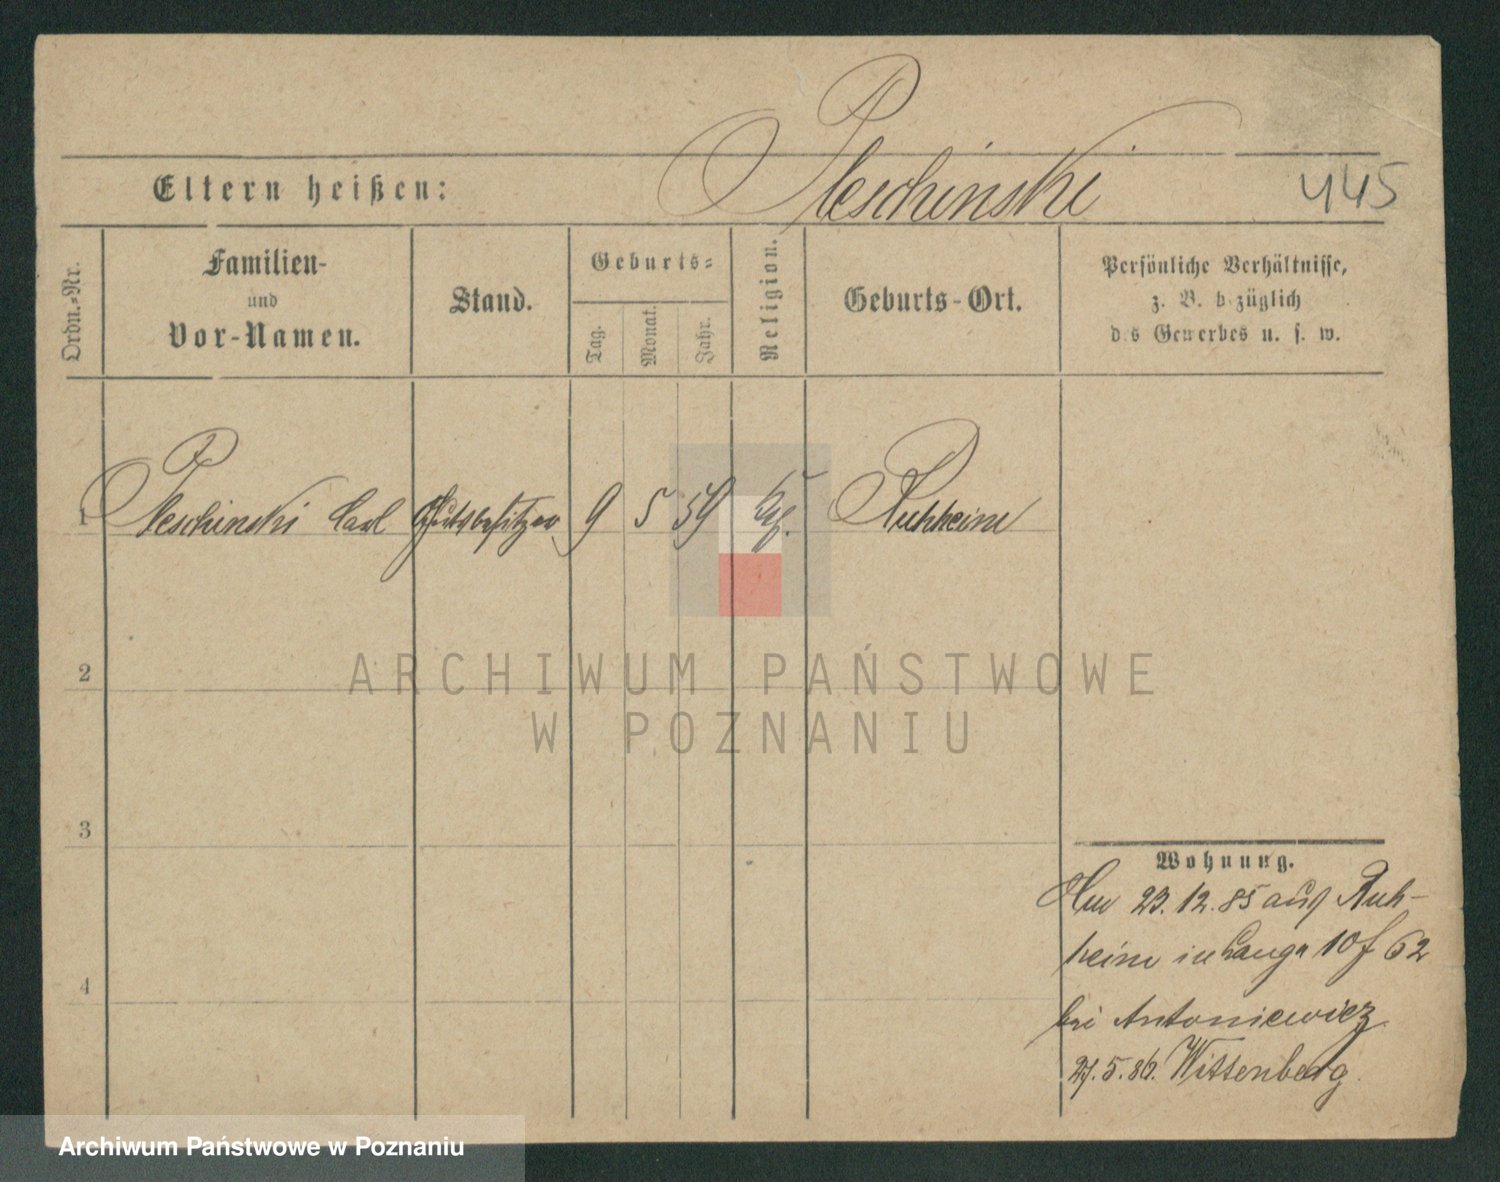 Eltern heißen: Pleschinski 445
Ordn.-Nr.
Familien-
und
Vor-Namen.
Stand.
Geburts-
Tag.
Monat.
Jahr.
Religion.
Geburts-Ort.
Persönliche Verhältnisse,
z. B. bezüglich
des Gewerbes u. s. w.
1 Pleschinski Carl Gutsbesitzer 9 5 59 Ruhheim
2
3
4
Wohnung.
23.12.85 aus Ruh-
heim in Lange 10 f 62
bei Antoniewicz
27.5.86. Wittenberg
ARCHIWUM PAŃSTWOWE
W POZNANIU
Archiwum Państwowe w Poznaniu